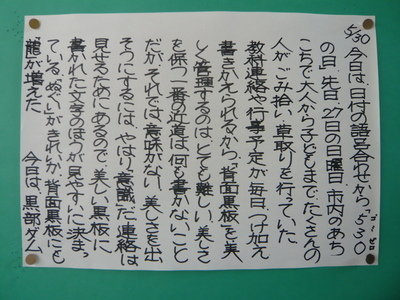 5/30 今日は、日付の語呂合せから、「530
ゴーミゼロ
の日」。先日、27日の日曜日、市内のあち
こちで大人から子どもまで、たくさんの
人がごみ拾い、草取りを行っていた。
教科連絡や行事予定が毎日、つけ加え
書きかえられるから、「背面黒板」を美
しく管理するのは、とても難しい。美しさ
を保つ一番の近道は、何も書かないこと
だが、それでは、意味がない。美しさを出
そうにするには、やはり「意識」だ。連絡は
見せるためにあるので、美しい黒板に
書かれた文字のほうが見やすいに決まっ
ている。ぬぐいがきれいか。背面黒板にも
龍が増えた。 今日は、黒部ダム